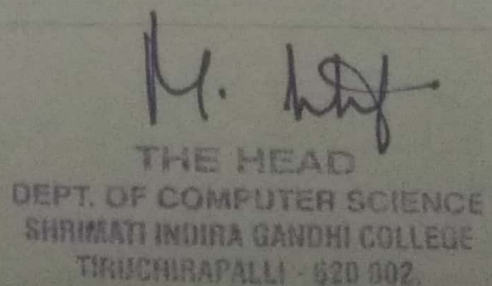 M.
THE HEAD
DEPT. OF COMPUTER SCIENCE
SHRIMATI INDIRA GANDHI COLLEGE
TIRUCHIRAPALLI - 620 002.